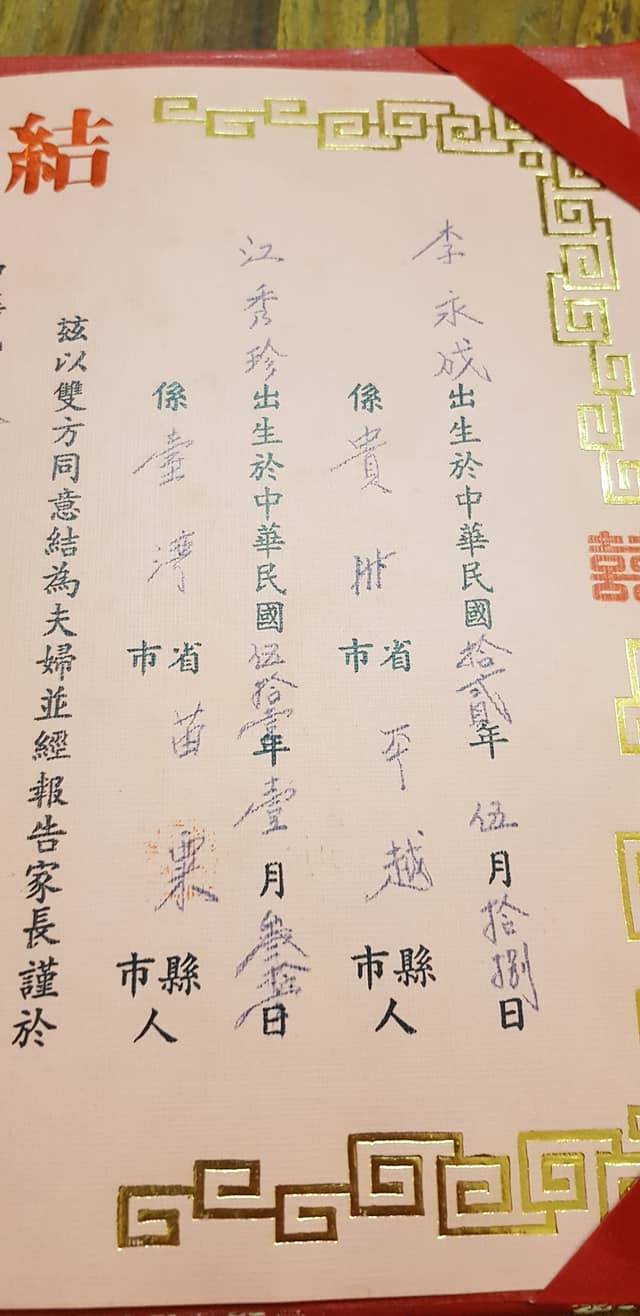 囍
李永成出生於中華民國拾貳年伍月拾捌日
係貴州省市平越縣市人
江秀珍出生於中華民國伍拾壹年壹月叁拾壹日
係臺灣省市苗栗縣市人
茲以雙方同意結為夫婦並經報告家長謹於
結